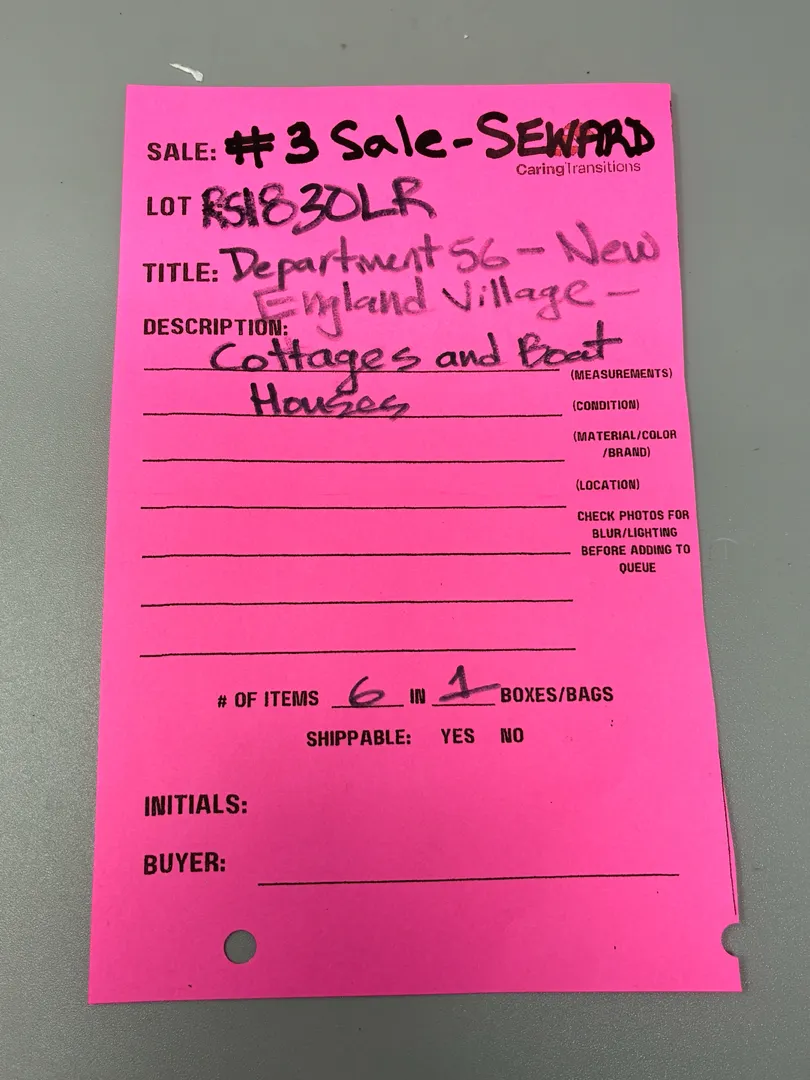 SALE: #3 Sale - SEWARD
CaringTransitions
LOT RS1830LR
TITLE: Department 56 - New
England Village -
DESCRIPTION:
Cottages and Boat
(MEASUREMENTS)
Houses
(CONDITION)
(MATERIAL/COLOR
/BRAND)
(LOCATION)
CHECK PHOTOS FOR
BLUR/LIGHTING
BEFORE ADDING TO
QUEUE
# OF ITEMS 6 IN 1 BOXES/BAGS
SHIPPABLE: YES NO
INITIALS:
BUYER: